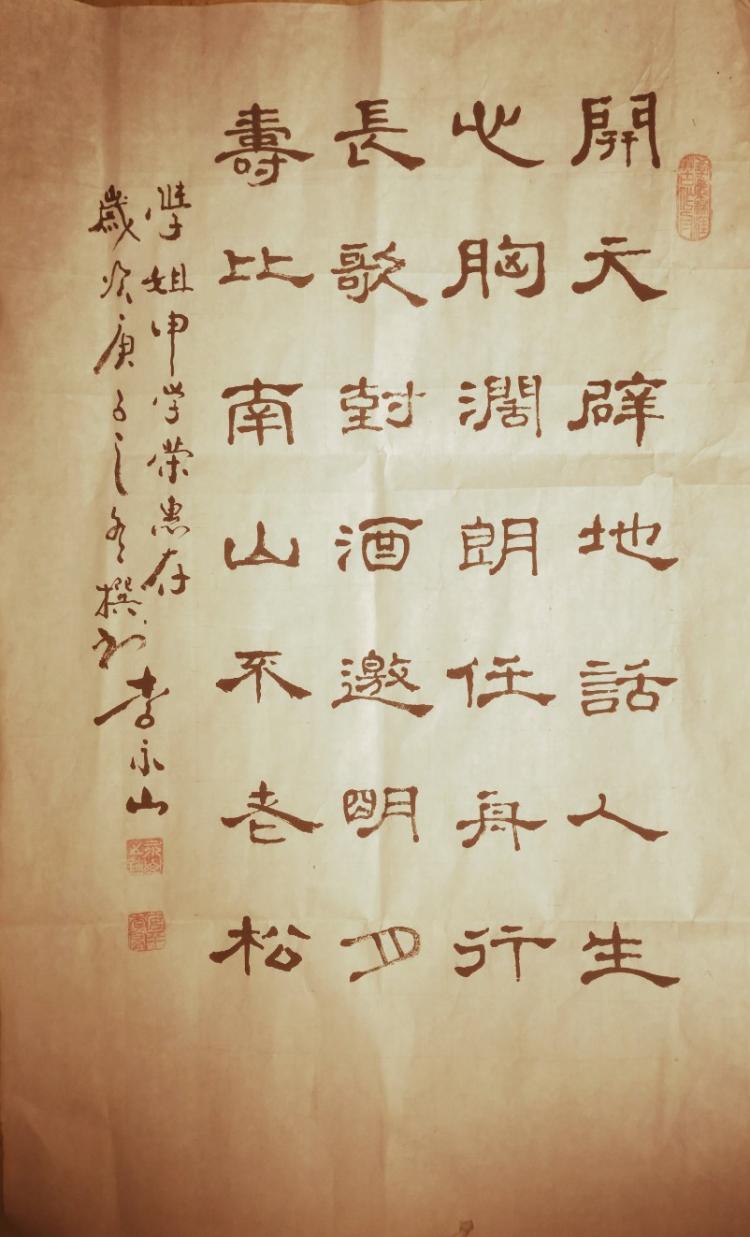 開天辟地話人生
心胸濶朗任舟行
長歌對酒邀明月
壽比南山不老松
學姐申学榮惠存
歲次庚子之冬撰书李永山